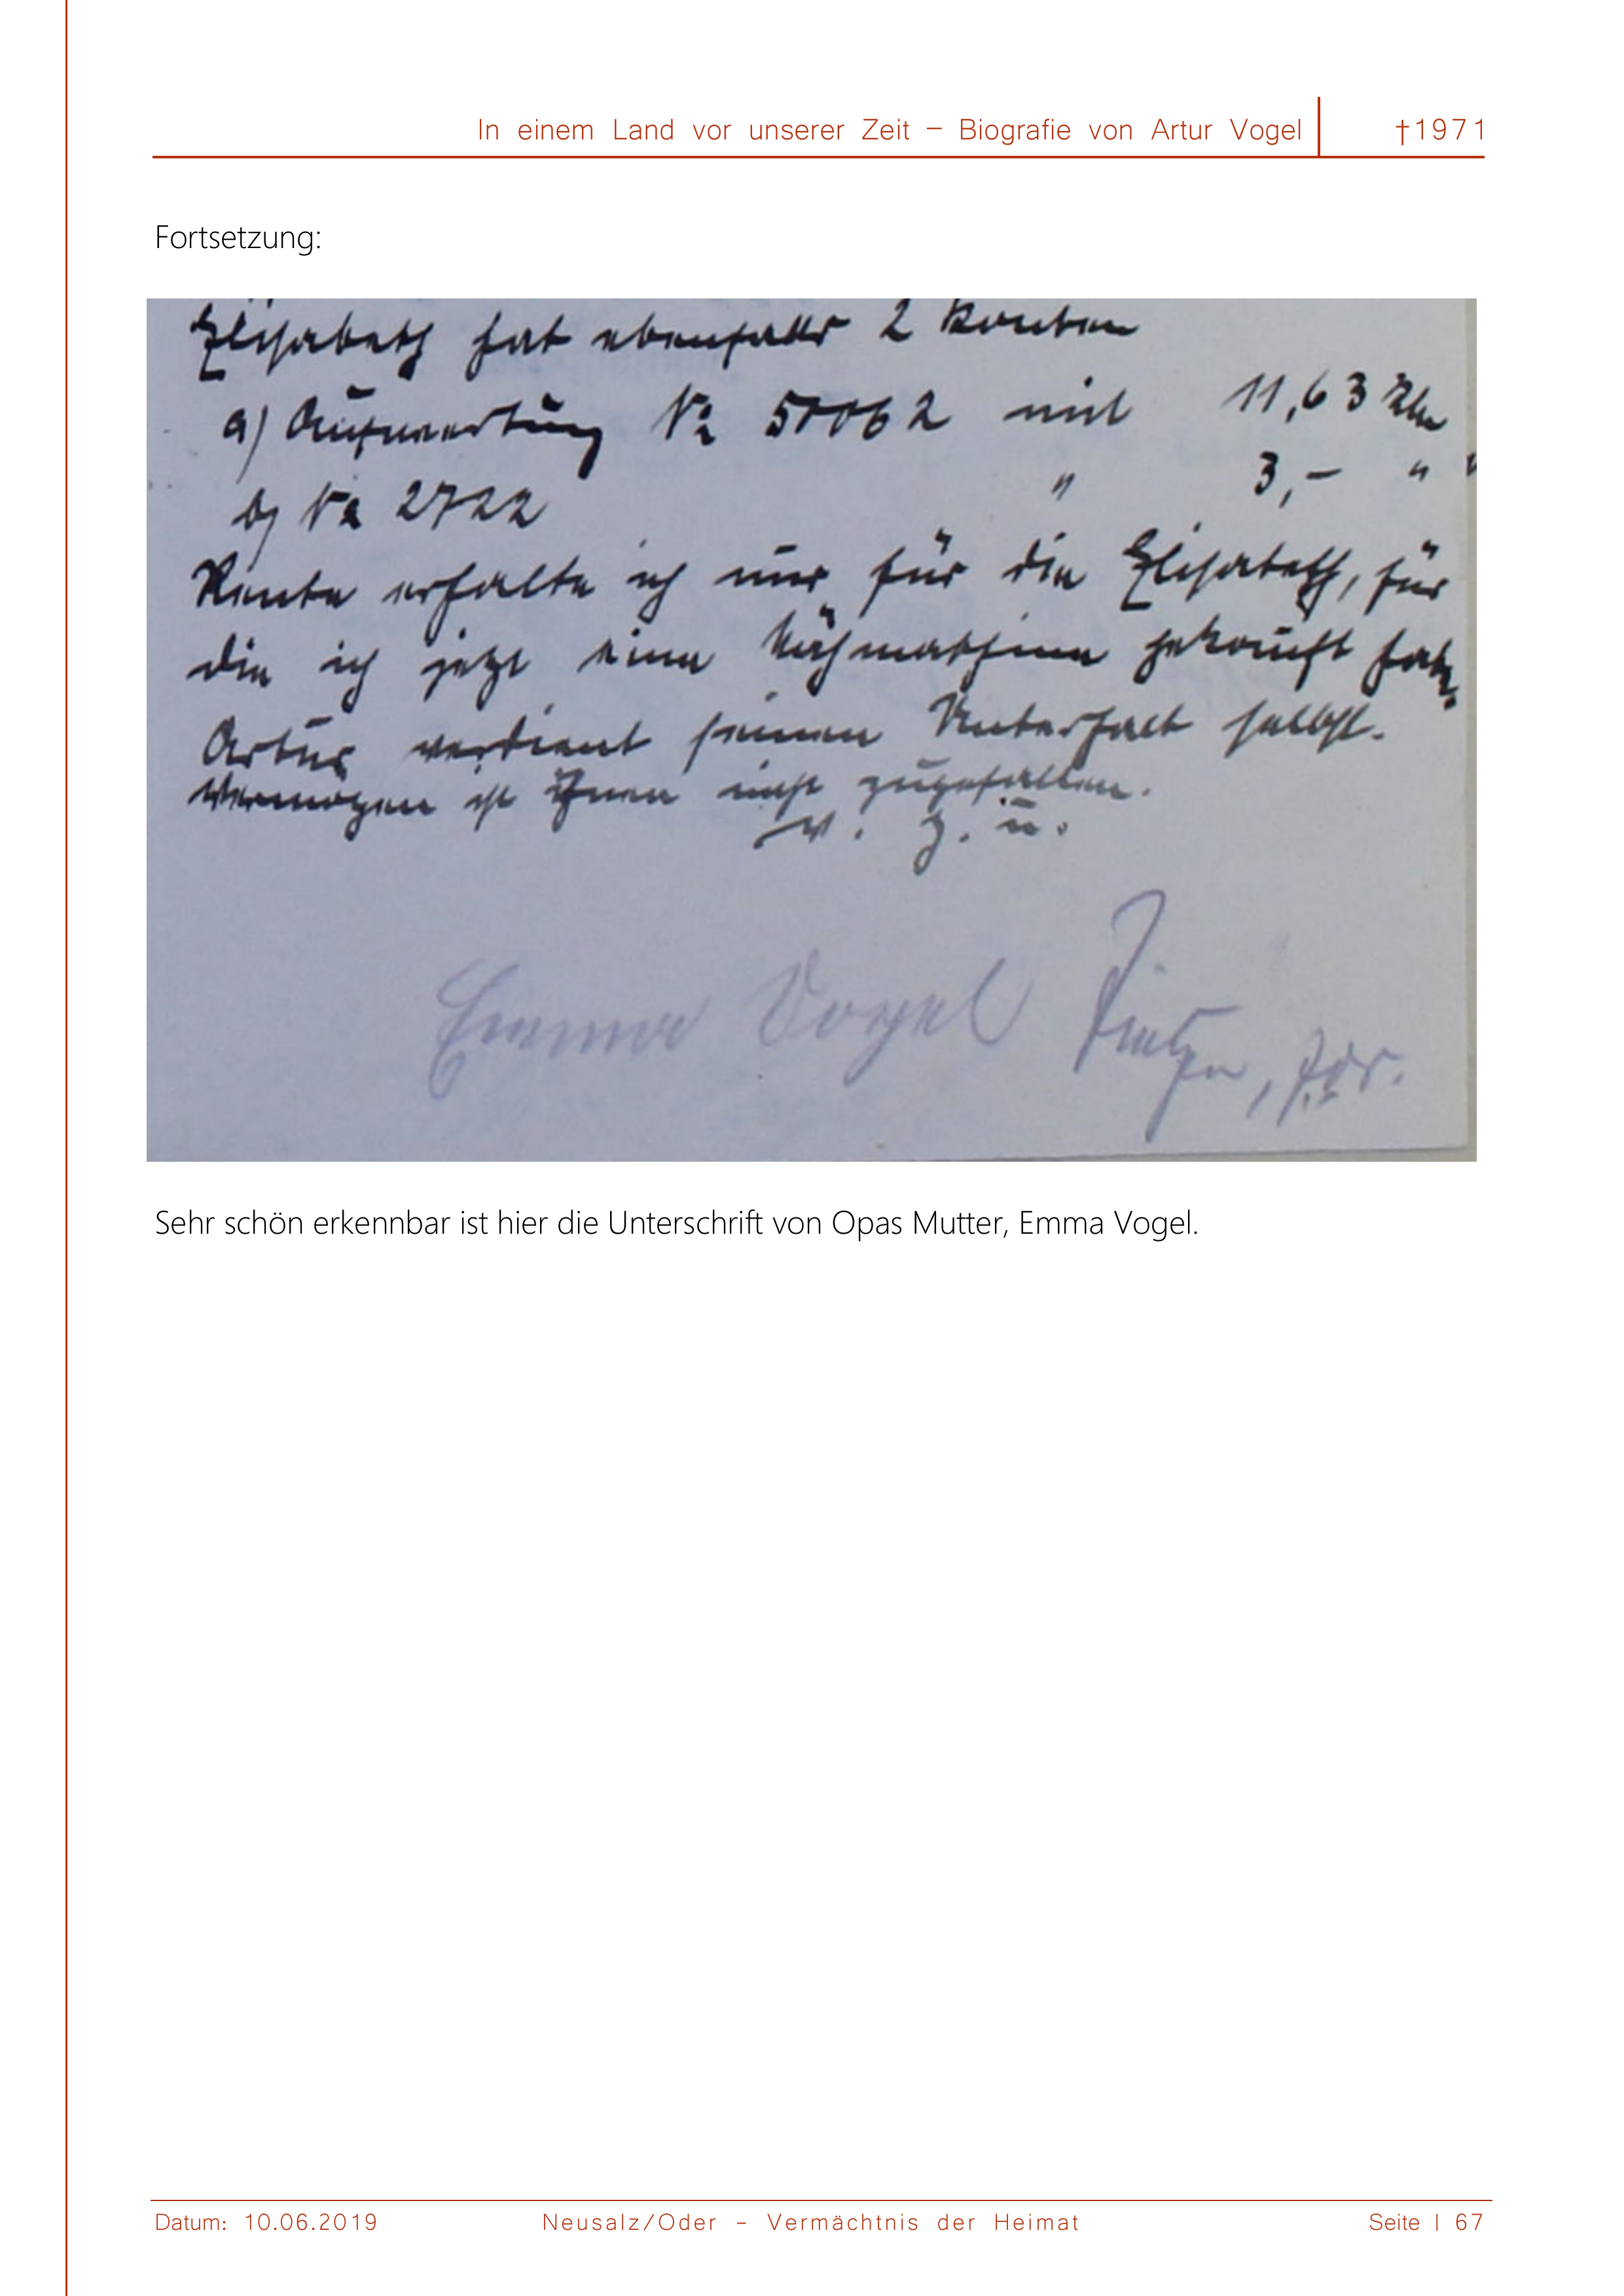 In einem Land vor unserer Zeit – Biografie von Artur Vogel †1971
Fortsetzung:
Elisabeth hat ebenfalls 2 Konten
a) Aufwertung No 50062 mit 11,63 RM
b) No 2722 " 3,– " "
Rente erhalte ich nur für die Elisabeth, für
die ich jetzt eine Nähmaschine gekauft habe.
Artur verdient seinen Unterhalt selbst.
Vermögen ist Ihnen nicht zugefallen.
v. g. u.
Emma Vogel
Sehr schön erkennbar ist hier die Unterschrift von Opas Mutter, Emma Vogel.
Datum: 10.06.2019 Neusalz/Oder – Vermächtnis der Heimat Seite | 67